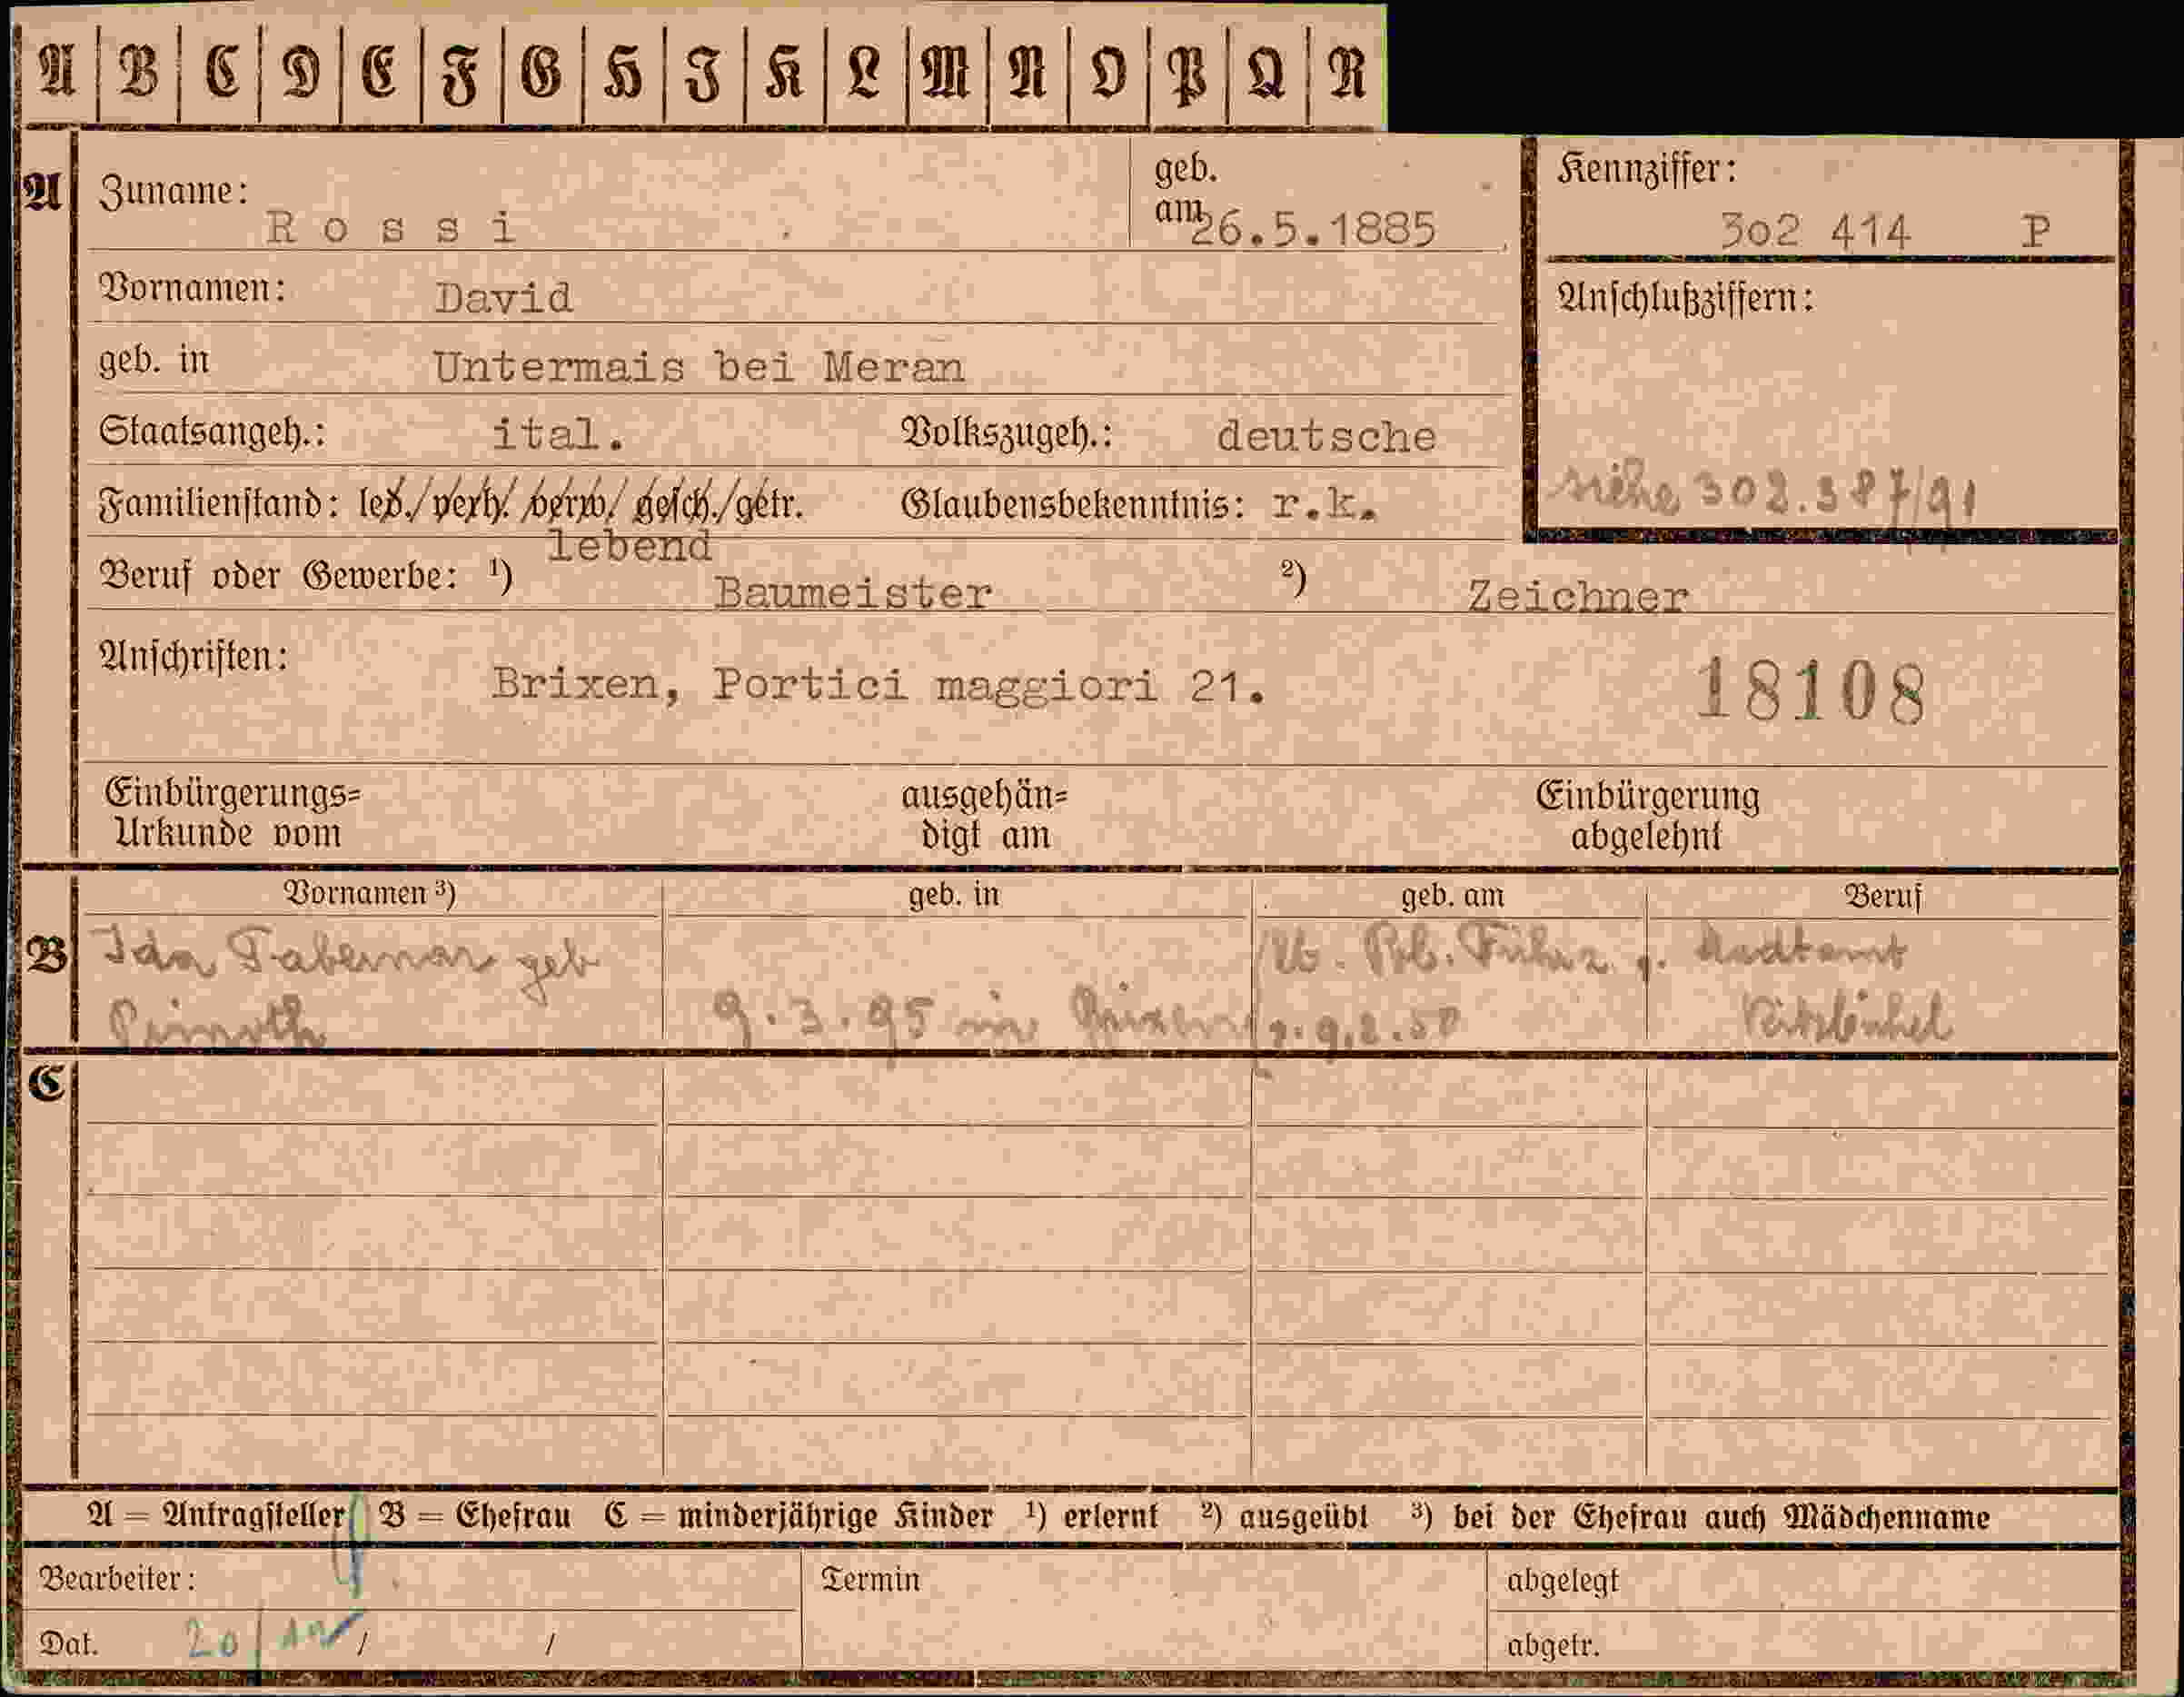 A B C D E F G H J K L M N O P Q R
A Zuname: R o s s i geb. am 26.5.1885 Kennziffer: 302 414 P
Vornamen: David Anschlußziffern:
geb. in Untermais bei Meran
Staatsangeh.: ital. Volkszugeh.: deutsche
Familienstand: led./verh./verw./gesch./getr. Glaubensbekenntnis: r.k. siehe 302.387/91
lebend
Beruf oder Gewerbe: ¹) Baumeister ²) Zeichner
Anschriften: Brixen, Portici maggiori 21. 18108
Einbürgerungs= ausgehän= Einbürgerung
Urkunde vom digt am abgelehnt
Vornamen ³) geb. in geb. am Beruf
B Ida Tabernar geb
9.3.95 in Brixen 9.2.50 Kitzbühel
C
A = Antragsteller B = Ehefrau C = minderjährige Kinder ¹) erlernt ²) ausgeübt ³) bei der Ehefrau auch Mädchenname
Bearbeiter: Termin abgelegt
Dat. 20/ / / abgetr.